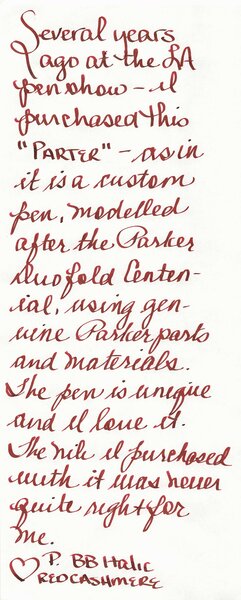 Several years
ago at the LA
pen show - I
purchased this
"PARTER" - as in
it is a custom
pen, modelled
after the Parker
Duofold Centen-
ial, using gen-
uine Parker parts
and materials.
The pen is unique
and I love it.
The nib I purchased
with it was never
quite right for
me.
♡ P. BB Italic
RED CASHMERE